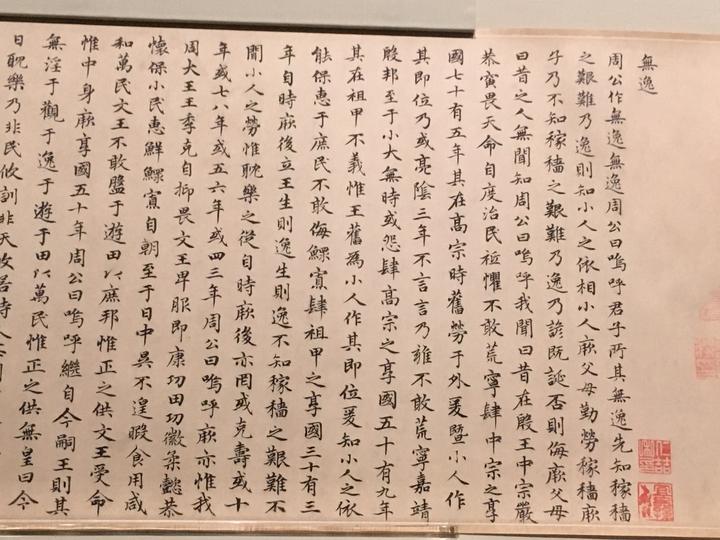 無逸
周公作無逸無逸周公曰嗚呼君子所其無逸先知稼穡
之艱難乃逸則知小人之依相小人厥父母勤勞稼穡厥
子乃不知稼穡之艱難乃逸乃諺既誕否則侮厥父母
曰昔之人無聞知周公曰嗚呼我聞曰昔在殷王中宗嚴
恭寅畏天命自度治民祗懼不敢荒寧肆中宗之享
國七十有五年其在高宗時舊勞于外爰暨小人作
其即位乃或亮陰三年不言言乃雍不敢荒寧嘉靖
殷邦至于小大無時或怨肆高宗之享國五十有九年
其在祖甲不義惟王舊為小人作其即位爰知小人之依
能保惠于庶民不敢侮鰥寡肆祖甲之享國三十有三
年自時厥後立王生則逸生則逸不知稼穡之艱難不
聞小人之勞惟耽樂之從自時厥後亦罔或克壽或十
年或七八年或五六年或四三年周公曰嗚呼厥亦惟我
周大王王季克自抑畏文王卑服即康功田功徽柔懿恭
懷保小民惠鮮鰥寡自朝至于日中昃不遑暇食用咸
和萬民文王不敢盤于遊田以庶邦惟正之供文王受命
惟中身厥享國五十年周公曰嗚呼繼自今嗣王則其
無淫于觀于逸于遊于田以萬民惟正之供無皇曰今
日耽樂乃非民攸訓非天攸若時人